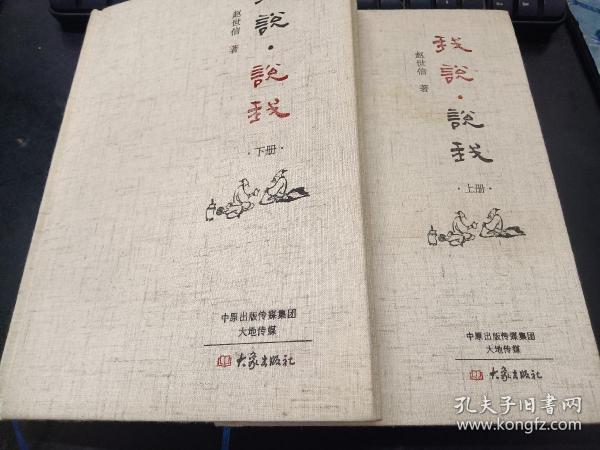 说·說我
赵世信 著
·下册·
中原出版传媒集团
大地传媒
大象出版社
我說·說我
赵世信 著
·上册·
中原出版传媒集团
大地传媒
大象出版社
孔夫子旧书网
www.kongfz.com